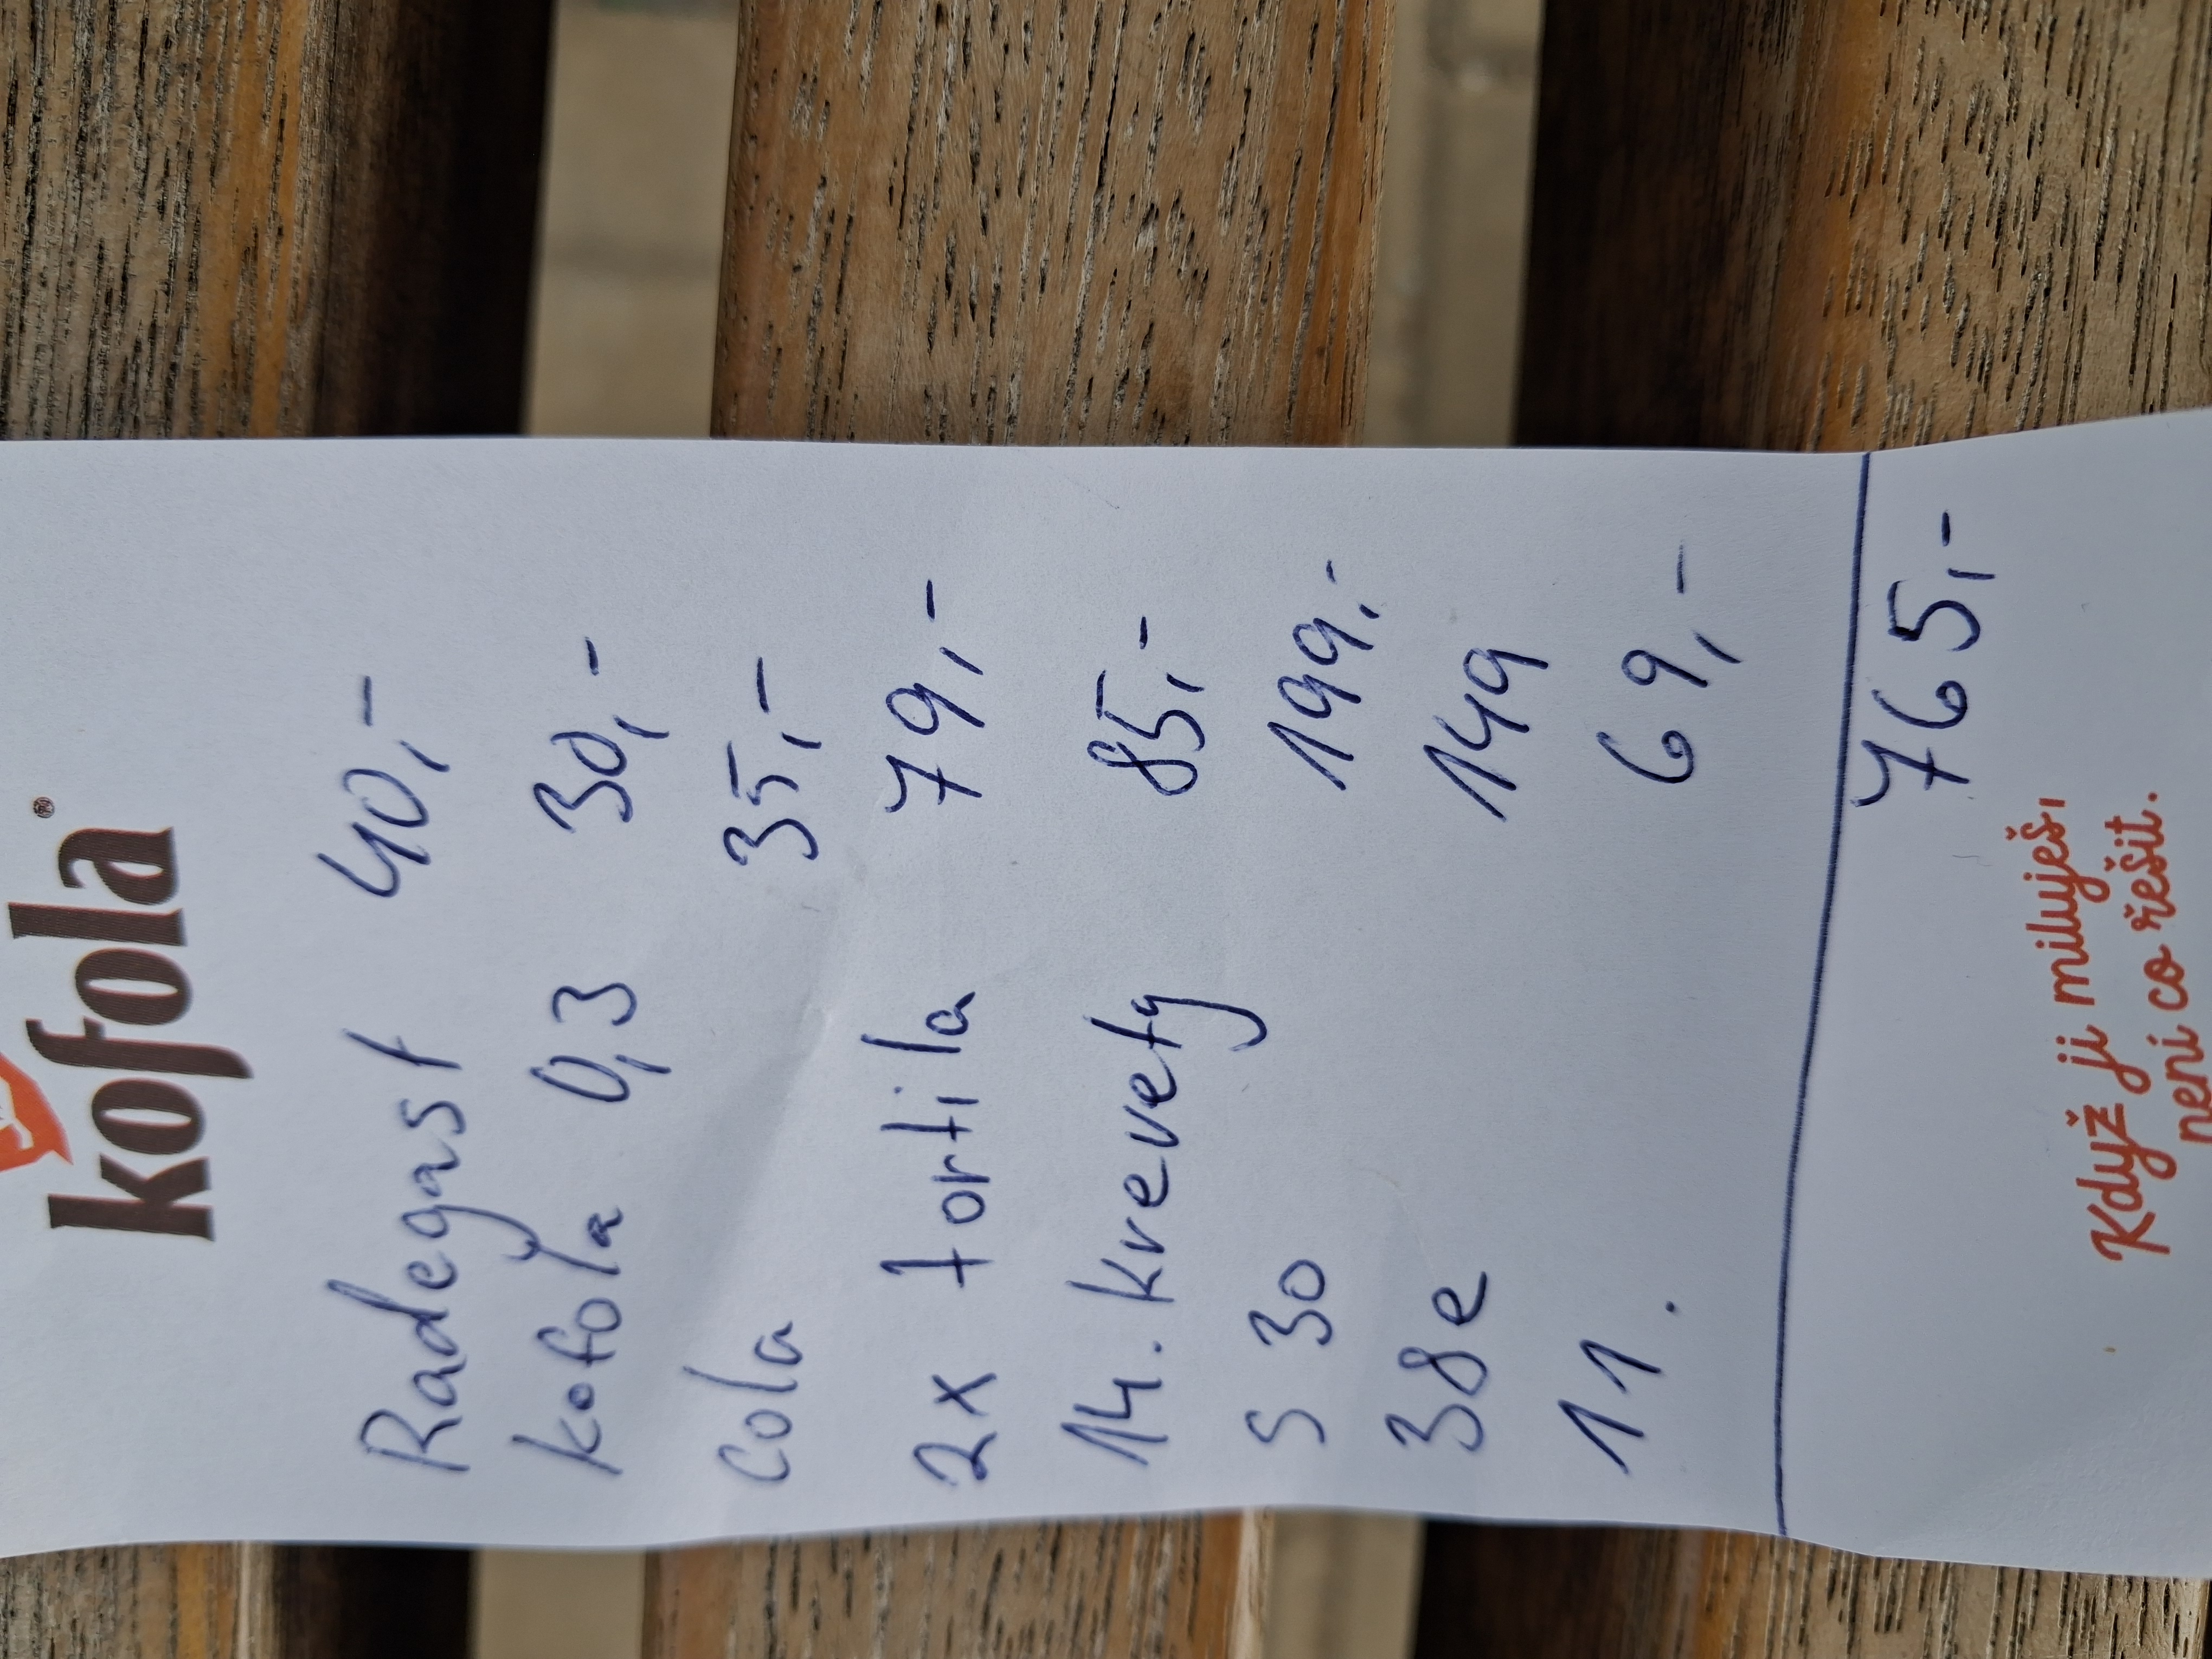 kofola®
Radegast 40,-
kofola 0,3 30,-
cola 35,-
2x tortila 79,-
14. krevety 85,-
S 30 199,-
38e 149
11. 69,-
765,-
Když ji miluješ,
není co řešit.